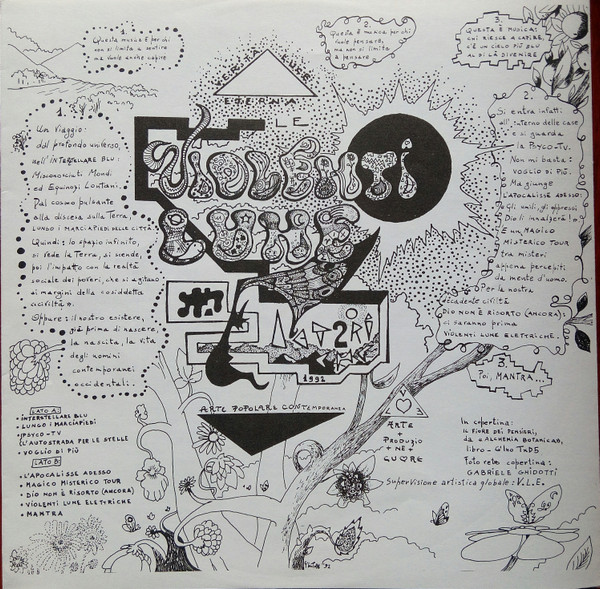 1.
Questa musica è per chi
non si limita a sentire
ma vuole anche capire
2.
Questa è musica per chi
vuole pensare,
ma non si limita
a pensare
3.
QUESTA È MUSICA:
CHI RIESCE A CAPIRE,
C'È UN CIELO PIÙ BLU
AL DI LÀ DIVENIRE
ETERNA
LE
VIOLENTI
LUNE
1992
ARTE POPOLARE CONTEMPORANEA
1.
Un viaggio:
dal profondo universo,
dell'INTERSTELLARE BLU:
Misconosciuti Mondi
ed Equinozi Lontani.
Dal cosmo pulsante
alla discesa sulla Terra,
LUNGO I MARCIAPIEDI DELLE CITTÀ.
Quindi: lo spazio infinito,
si vede la Terra, si scende,
poi l'impatto con la realtà
sociale dei poveri, che si agitano
ai margini della cosiddetta
civiltà.
Oppure: il nostro esistere,
già prima di nascere,
la nascita, la vita
degli uomini
contemporanei
occidentali.
2.
Si entra infatti
all'interno delle case
e si guarda
la PSYCO-TV.
Non mi basta:
VOGLIO DI PIÙ.
Ma giunge
L'APOCALISSE ADESSO:
Gli umili, gli oppressi
Dio li innalzerà!
E un MAGICO
MISTERICO TOUR
tra misteri
appena percepiti
da mente d'uomo.
Per la nostra
decadente civiltà
DIO NON È RISORTO (ANCORA):
ci saranno prima
VIOLENTI LUNE ELETTRICHE.
3.
Poi, MANTRA...
LATO A:
• INTERSTELLARE BLU
• LUNGO I MARCIAPIEDI
• PSYCO-TV
• L'AUTOSTRADA PER LE STELLE
• VOGLIO DI PIÙ
LATO B:
• L'APOCALISSE ADESSO
• MAGICO MISTERICO TOUR
• DIO NON È RISORTO (ANCORA)
• VIOLENTI LUNE ELETTRICHE
• MANTRA
V E
ARTE
PRODUZIO
+NE+
CUORE
In copertina:
IL FIORE DEI PENSIERI,
da "ALCHEMIA BOTANICA",
libro-
Foto retro copertina:
GABRIELE GHIDOTTI
Supervisione artistica globale: V.L.E.